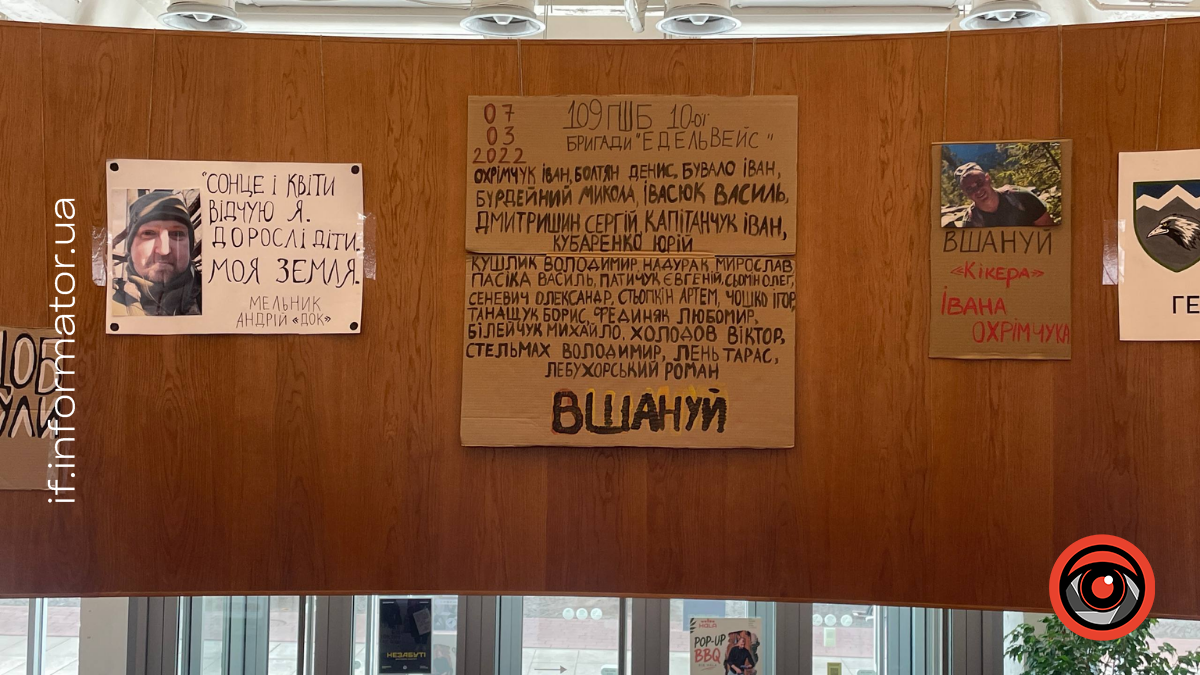 if.informator.ua
"СОНЦЕ І КВІТИ
ВІДЧУЮ Я.
ДОРОСЛІ ДІТИ.
МОЯ ЗЕМЛЯ.
МЕЛЬНИК
АНДРІЙ «ДОК»
07
03
2022
109 ПШБ 10-ОТ
БРИГАДИ "ЕДЕЛЬВЕЙС"
ОХРІМЧУК ІВАН, БОЛТЯН ДЕНИС, БУВАЛО ІВАН,
БУРДЕЙНИЙ МИКОЛА, ІВАСЮК ВАСИЛЬ,
ДМИТРИШИН СЕРГІЙ, КАПІТАНЧУК ІВАН,
КУБАРЕНКО ЮРІЙ
КУШЛИК ВОЛОДИМИР, НАДУРАК МИРОСЛАВ,
ПАСІКА ВАСИЛЬ, ПАТИЧУК ЄВГЕНІЙ, СЬОМІН ОЛЕГ,
СЕНЕВИЧ ОЛЕКСАНДР, СТЬОПКІН АРТЕМ, ЧОШКО ІГОР,
ТАНАЩУК БОРИС, ФЕДИНЯК ЛЮБОМИР,
БІЛЕЙЧУК МИХАЙЛО, ХОЛОДОВ ВІКТОР,
СТЕЛЬМАХ ВОЛОДИМИР, ЛЕНЬ ТАРАС,
ЛЕБУХОРСЬКИЙ РОМАН
ВШАНУЙ
ВШАНУЙ
«Кікера»
ІВАНА
ОХРІМЧУКА
ГЕ
ДОБ
УЛИ
НЕЗАБУТІ
POP-UP
BBQ